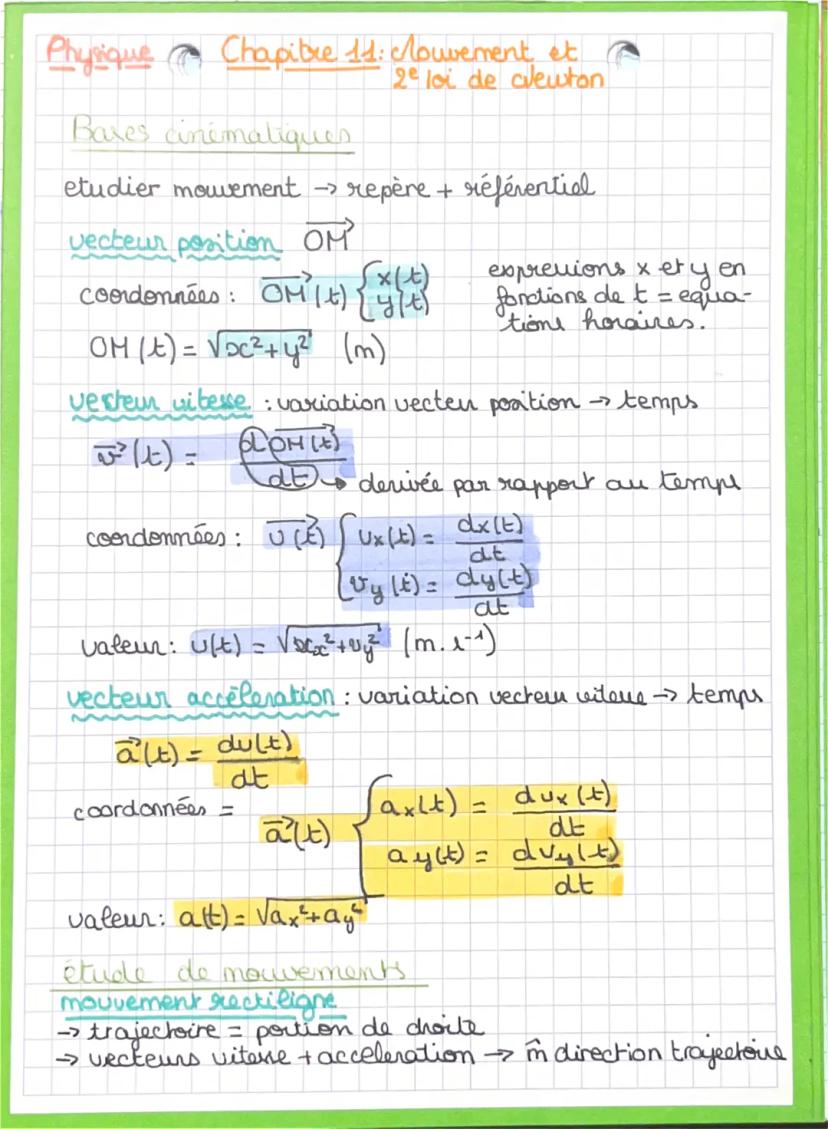 Physique Chapitre 11: Mouvement et
2e loi de Newton
Bases cinématiques
etudier mouvement → repère + référentiel
vecteur position OM⃗
coordonnées : OM⃗(t) { x(t)
y(t)
expressions x et y en
fonctions de t = equa-
tions horaires.
OM (t) = √x²+y² (m)
vecteur vitesse : variation vecteur position → temps
v⃗(t) = dOM⃗(t)/dt → derivée par rapport au temps
coordonnées : v⃗(t) { vx(t) = dx(t)/dt
vy(t) = dy(t)/dt
valeur : v(t) = √vx²+vy² (m.s⁻¹)
vecteur accéleration : variation vecteur vitesse → temps
a⃗(t) = dv(t)/dt
coordonnées =
a⃗(t) { ax(t) = dvx(t)/dt
ay(t) = dvy(t)/dt
valeur : a(t) = √ax²+ay²
étude de mouvements
mouvement rectiligne
→ trajectoire = portion de droite
→ vecteurs vitesse + acceleration → m̂ direction trajectoire